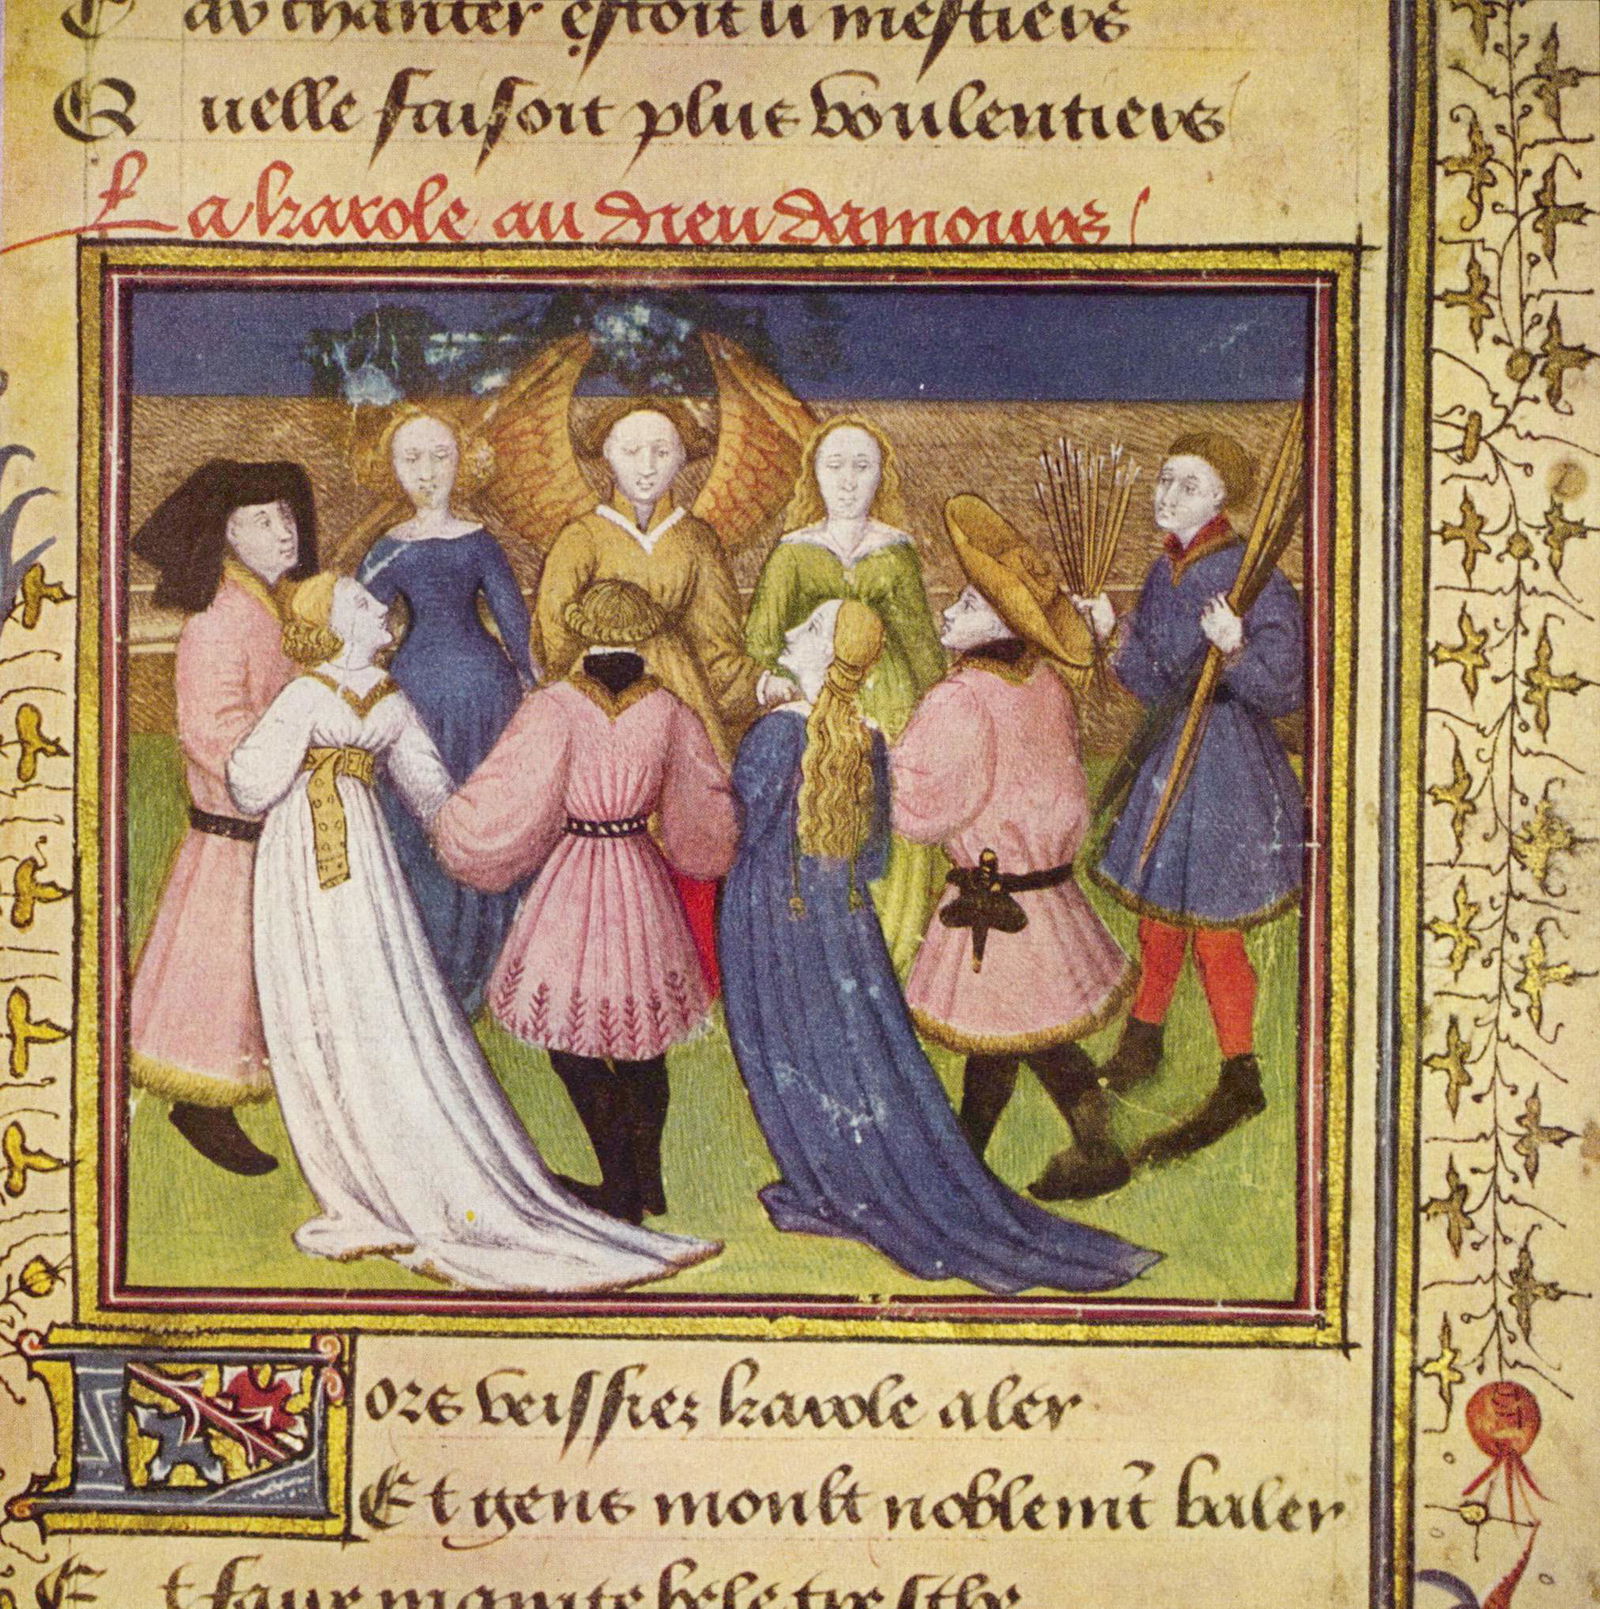 Car chanter estoit li mestiers
Quelle faisoit plus voulentiers
La karole au dieu damours
Lors veissiez karole aler
Et gens moult noblemt baler
Et faire mainte bele tresche